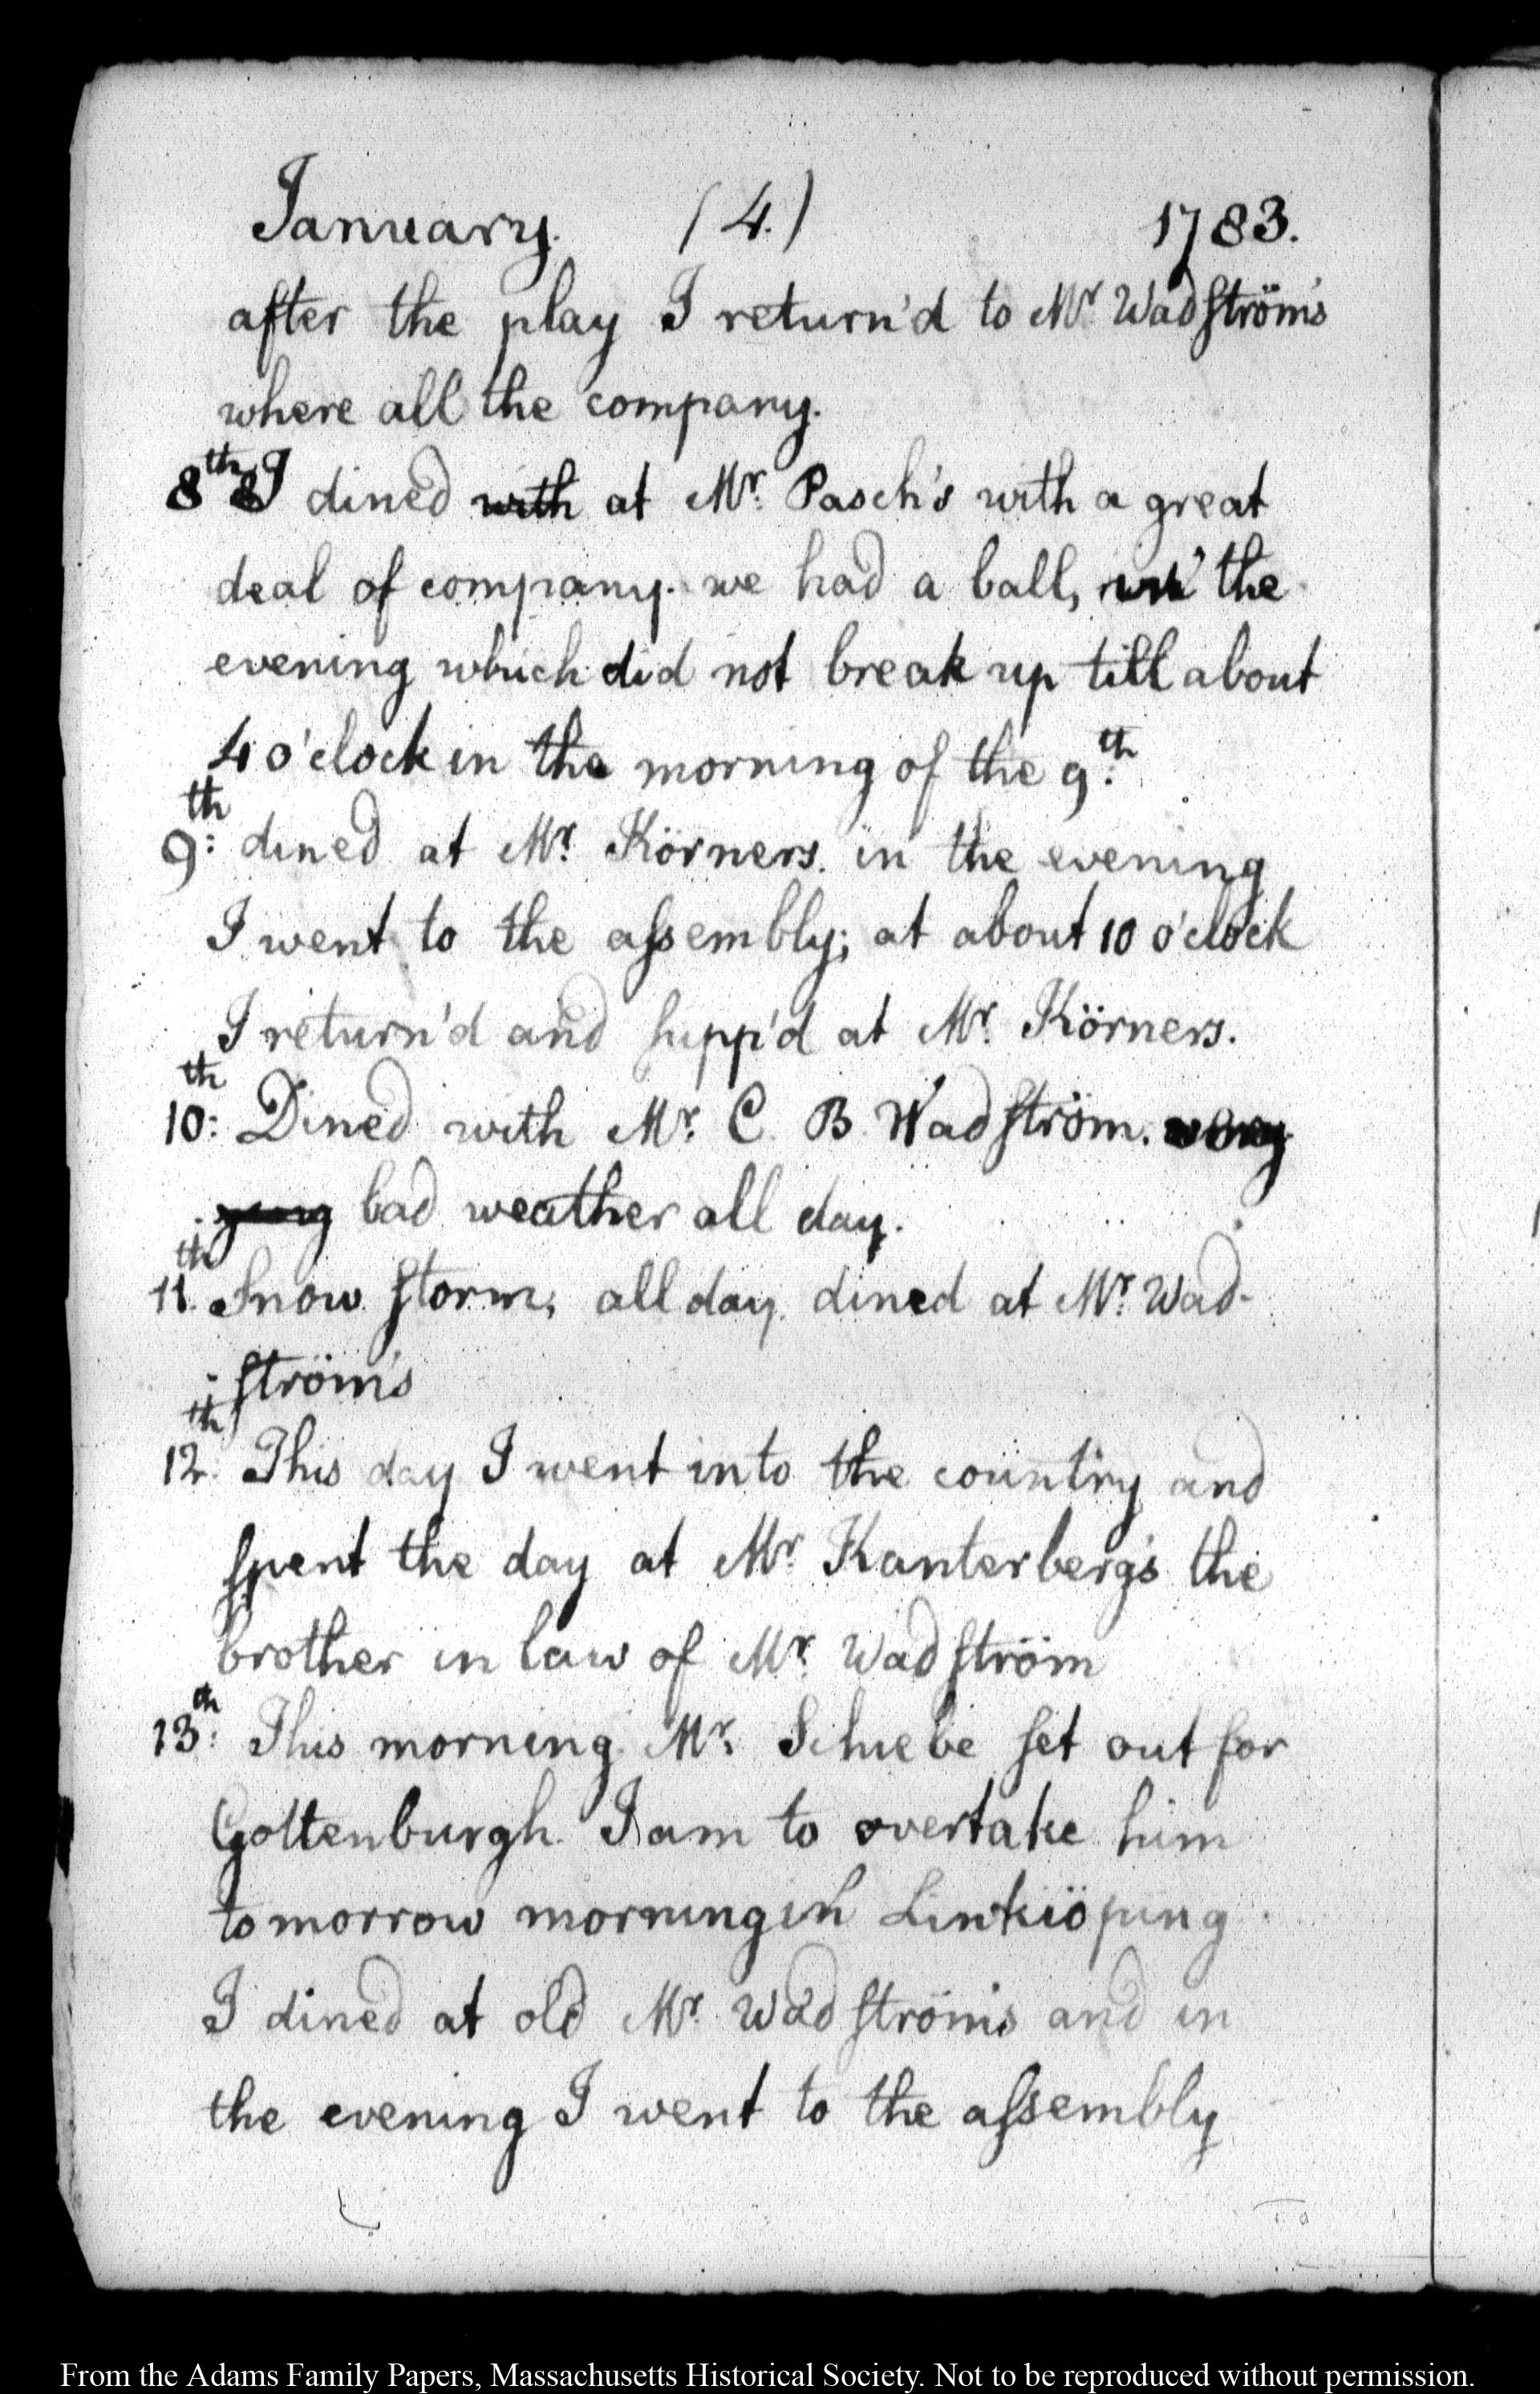 January. (4.) 1783.
after the play I return'd to Mr. Wadström's
where all the company.
8th I dined with at Mr. Pasch's with a great
deal of company. we had a ball, in the
evening which did not break up till about
4 o'clock in the morning of the 9th.
9th: dined at Mr. Körners. in the evening
I went to the assembly; at about 10 o'clock
I return'd and supp'd at Mr. Körners.
10th: Dined with Mr. C. B. Wadström. very
bad weather all day.
11th. Snow storm, all day. dined at Mr. Wad-
ström's
12th. This day I went into the country and
spent the day at Mr. Kanterberg's the
brother in law of Mr. Wadström
13th: This morning Mr. Schiebe set out for
Gottenburgh. I am to overtake him
tomorrow morning in Linkiöping
I dined at old Mr. Wadström's and in
the evening I went to the assembly
From the Adams Family Papers, Massachusetts Historical Society. Not to be reproduced without permission.